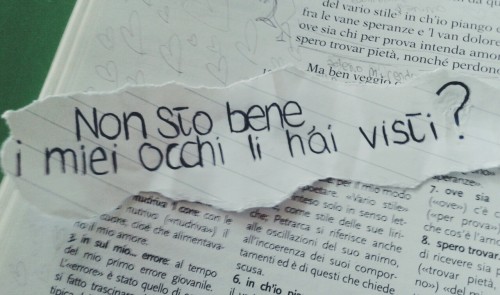 del vario stile in ch'io piango e
fra le vane speranze e 'l van dolore
ove sia chi per prova intenda amor
spero trovar pietà, nonché perdono
Ma ben veggio
Non sto bene
i miei occhi li hai visti?
nutriva il core: con le
nutrivo («nudriva») il
cuore, cioè che alimentava
no il mio amore.
3. in sul mio... errore: al tempo
del mio primo errore giovanile.
L'«errore» è stato quello di
si fatto trascinare
per il mio modo
poetare. «Vario stile»
inteso solo in senso let-
come stile delle sue liri-
che; Petrarca si riferisce anche
alle oscillazioni del suo animo,
all'incoerenza dei suoi compor-
tamenti ed è di questi che chiede
scusa.
6. in ch'io
7. ove sia
(«ove») c'è
(«per prova»)
che cos'è l'am
8. spero trovar
di ricevere sia
(«trovar pietà,
no») «del